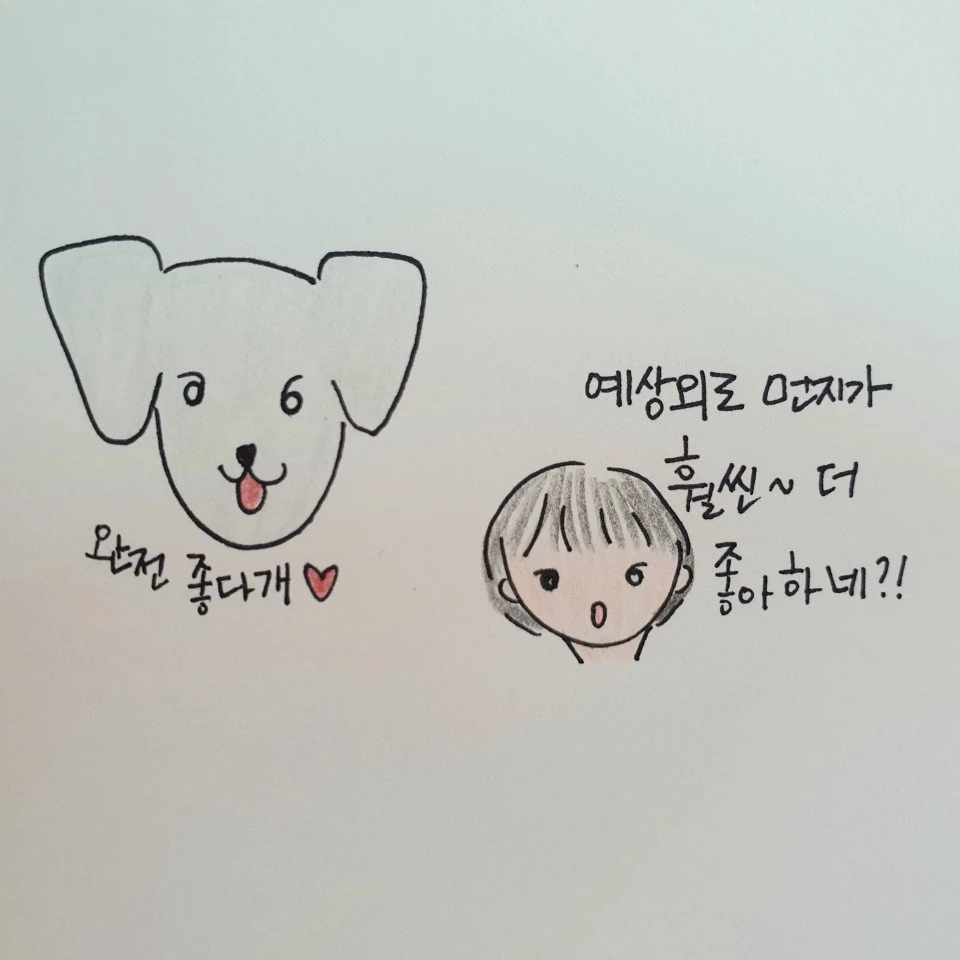 완전 좋다개♥
예상외로 먼지가
훨씬~ 더
좋아하네?!